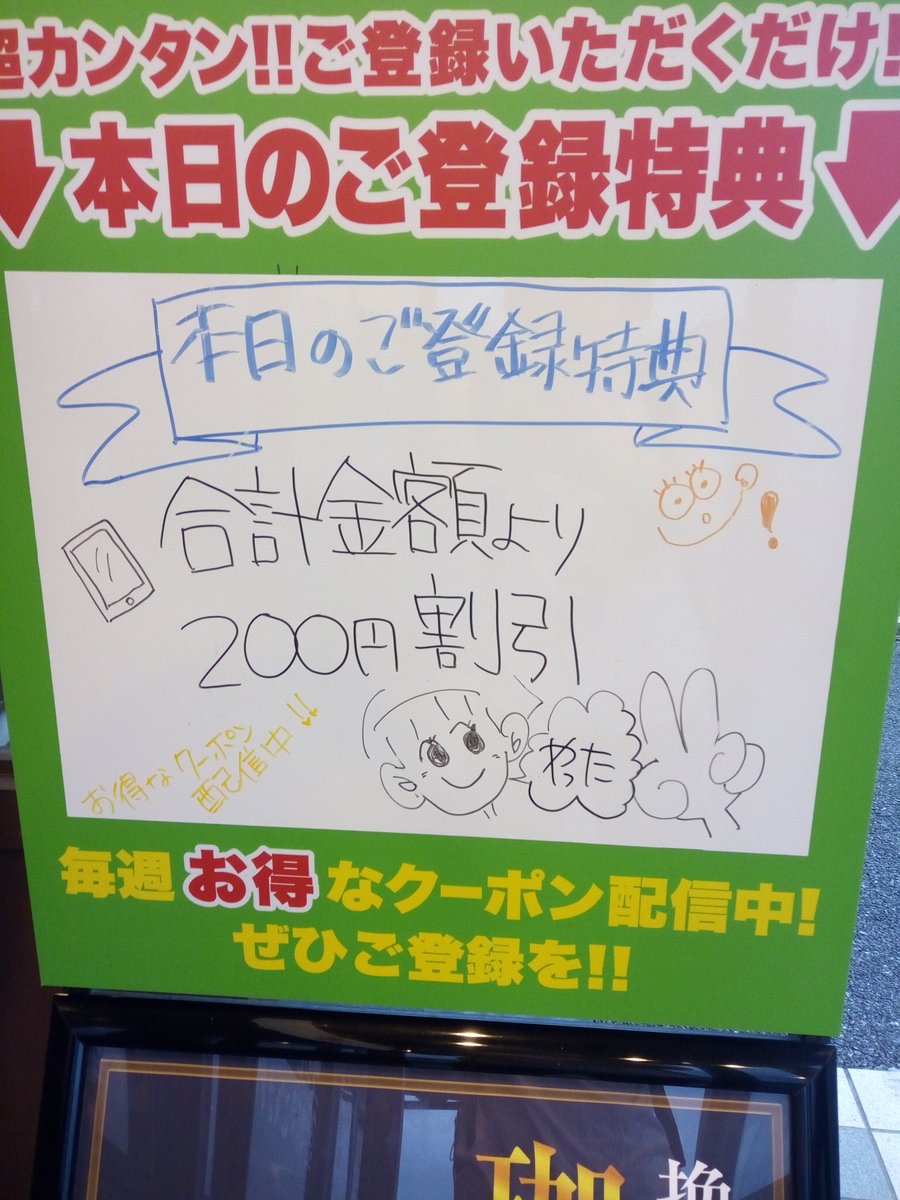 超カンタン!!ご登録いただくだけ!
本日のご登録特典
本日のご登録特典
合計金額より
200円割引
お得なクーポン
配信中!!
やった
毎週お得なクーポン配信中!
ぜひご登録を!!